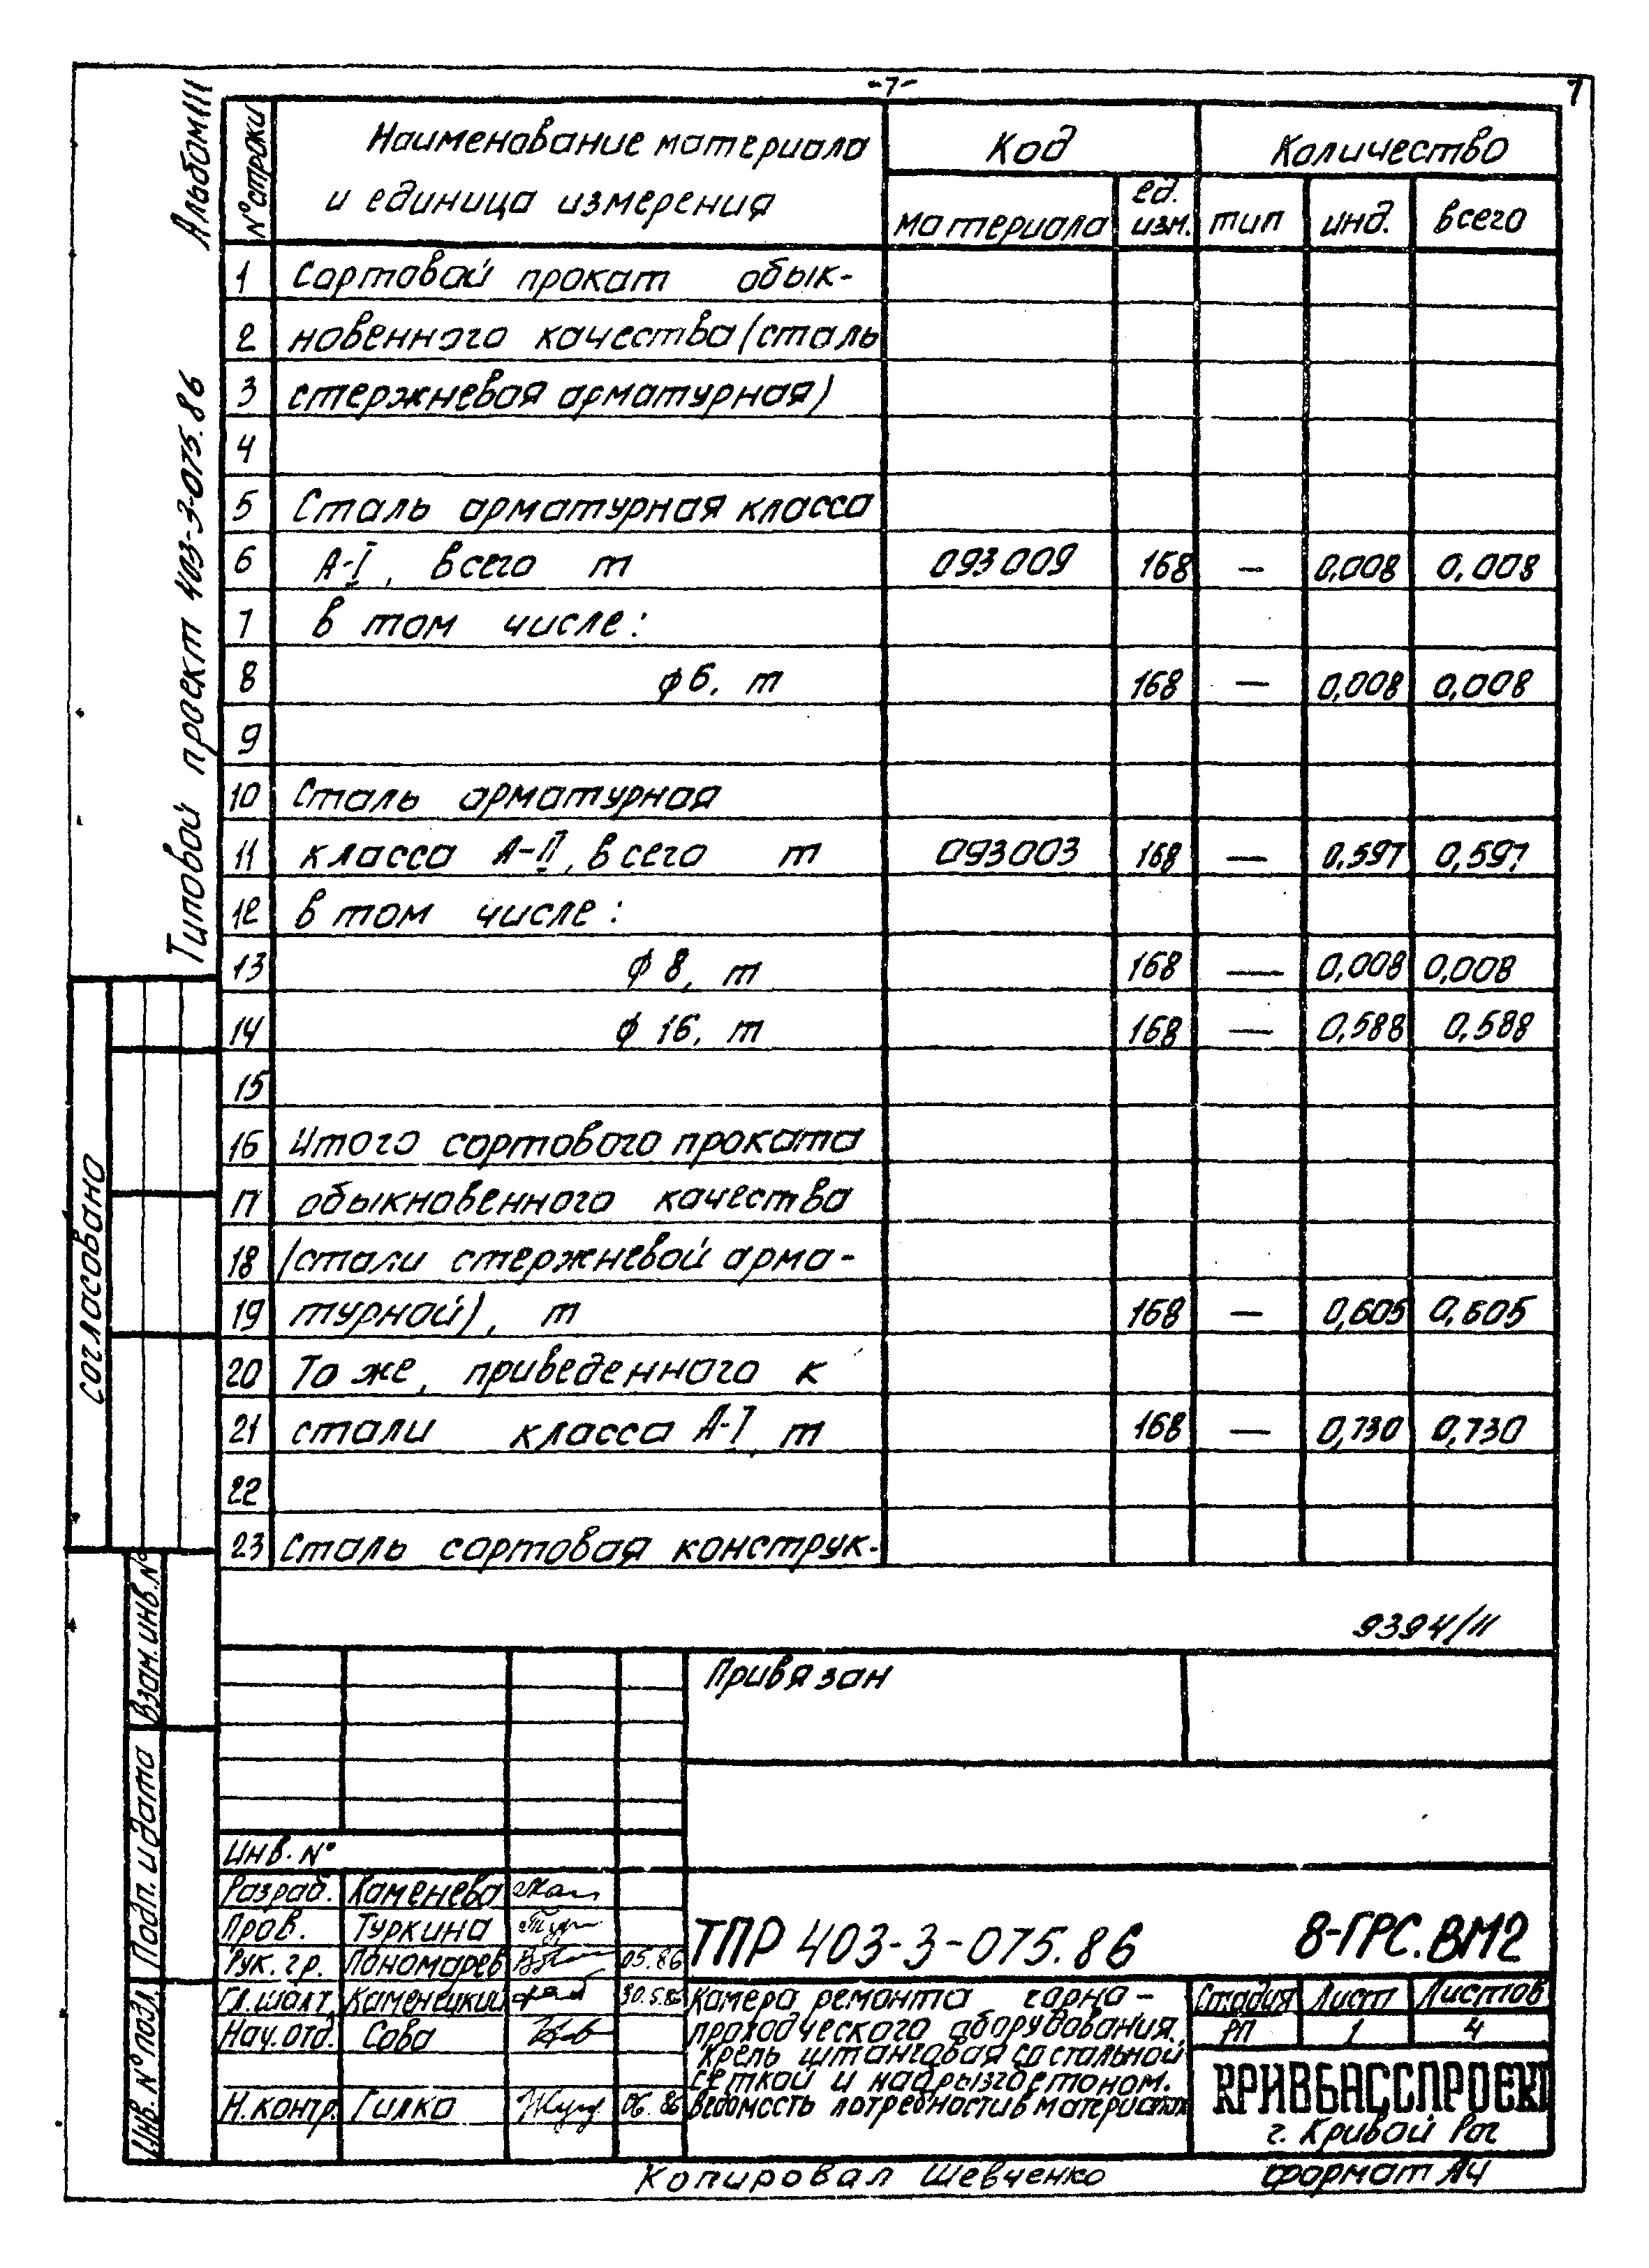 -7-
7
Альбом III
Типовой проект 403-3-075.86
№ строки
Наименование материала
и единица измерения
Код
Количество
материала
ед.
изм.
тип
инд.
всего
1 Сортовой прокат обык-
2 новенного качества (сталь
3 стержневая арматурная)
4
5 Сталь арматурная класса
6 А-I, всего т 093009 168 — 0,008 0,008
7 в том числе:
8 ϕ6, т 168 — 0,008 0,008
9
10 Сталь арматурная
11 класса А-II, всего т 093003 168 — 0,597 0,597
12 в том числе:
13 ϕ 8, т 168 — 0,008 0,008
14 ϕ 16, т 168 — 0,588 0,588
15
16 Итого сортового проката
17 обыкновенного качества
18 (стали стержневой арма-
19 турной), т 168 — 0,605 0,605
20 То же, приведенного к
21 стали класса А-I, т 168 — 0,730 0,730
22
23 Сталь сортовая конструк-
согласовано
Взам. инв. №
Подп. и дата
Инв. № подл.
9394/11
Привязан
Инв. №
Разраб. Каменева
Пров. Туркина
Рук. гр. Пономарев 05.86
Гл. шахт. Каменецкий 30.5.86
Нач. отд. Сова
Н. контр. Гилко 06.86
ТПР 403-3-075.86 8-ГРС.ВМ2
Камера ремонта горно-
проходческого оборудования.
Крепь штанговая со стальной
сеткой и набрызгбетоном.
Ведомость потребности в материалах
Стадия Лист Листов
РП 1 4
КРИВБАССПРОЕКТ
г. Кривой Рог
Копировал Шевченко
формат А4